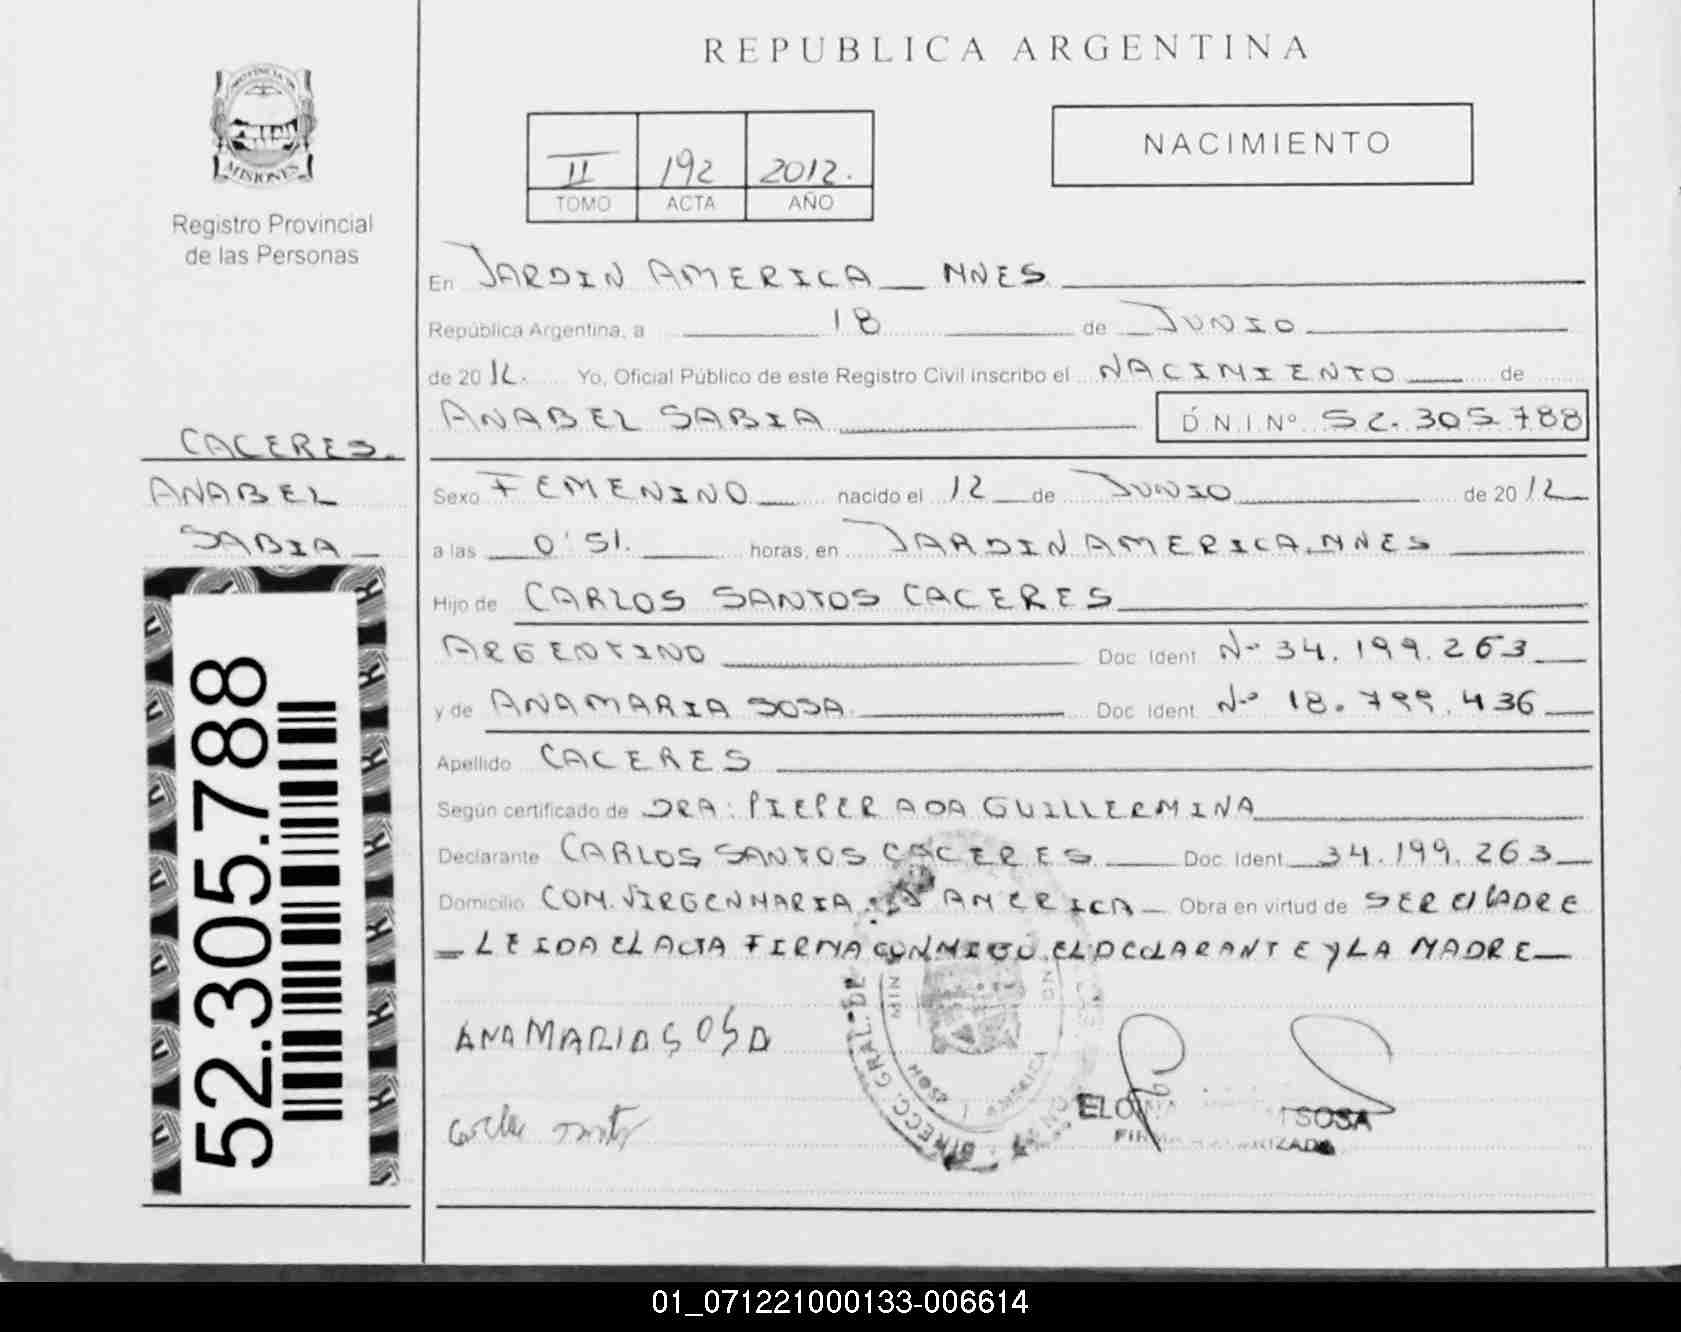 REPUBLICA ARGENTINA
PROVINCIA DE
MISIONES
Registro Provincial
de las Personas
II 192 2012.
TOMO ACTA AÑO
NACIMIENTO
En JARDIN AMERICA MNES
República Argentina, a 18 de JUNIO
de 2012. Yo, Oficial Público de este Registro Civil inscribo el NACIMIENTO de
ANABEL SABIA D.N.I Nº 52.305.788
CACERES.
ANABEL
SABIA
Sexo FEMENINO nacido el 12 de JUNIO de 2012
a las 0'51. horas, en JARDIN AMERICA. MNES
Hijo de CARLOS SANTOS CACERES
ARGENTINO Doc. Ident. Nº 34.199.263
y de ANA MARIA SOSA. Doc. Ident. Nº 18.799.436
Apellido CACERES
Según certificado de DRA: PIEPER ADA GUILLERMINA
Declarante CARLOS SANTOS CACERES Doc. Ident. 34.199.263
Domicilio COM. VIRGEN MARIA AMERICA Obra en virtud de SER El PADRE
LEIDA EL ACTA FIRMA CONMIGO EL DECLARANTE y LA MADRE
52.305.788
ANA MARIA SOSA
DIRECC. GRAL. DE
AMERICA
SOSA
01_071221000133-006614